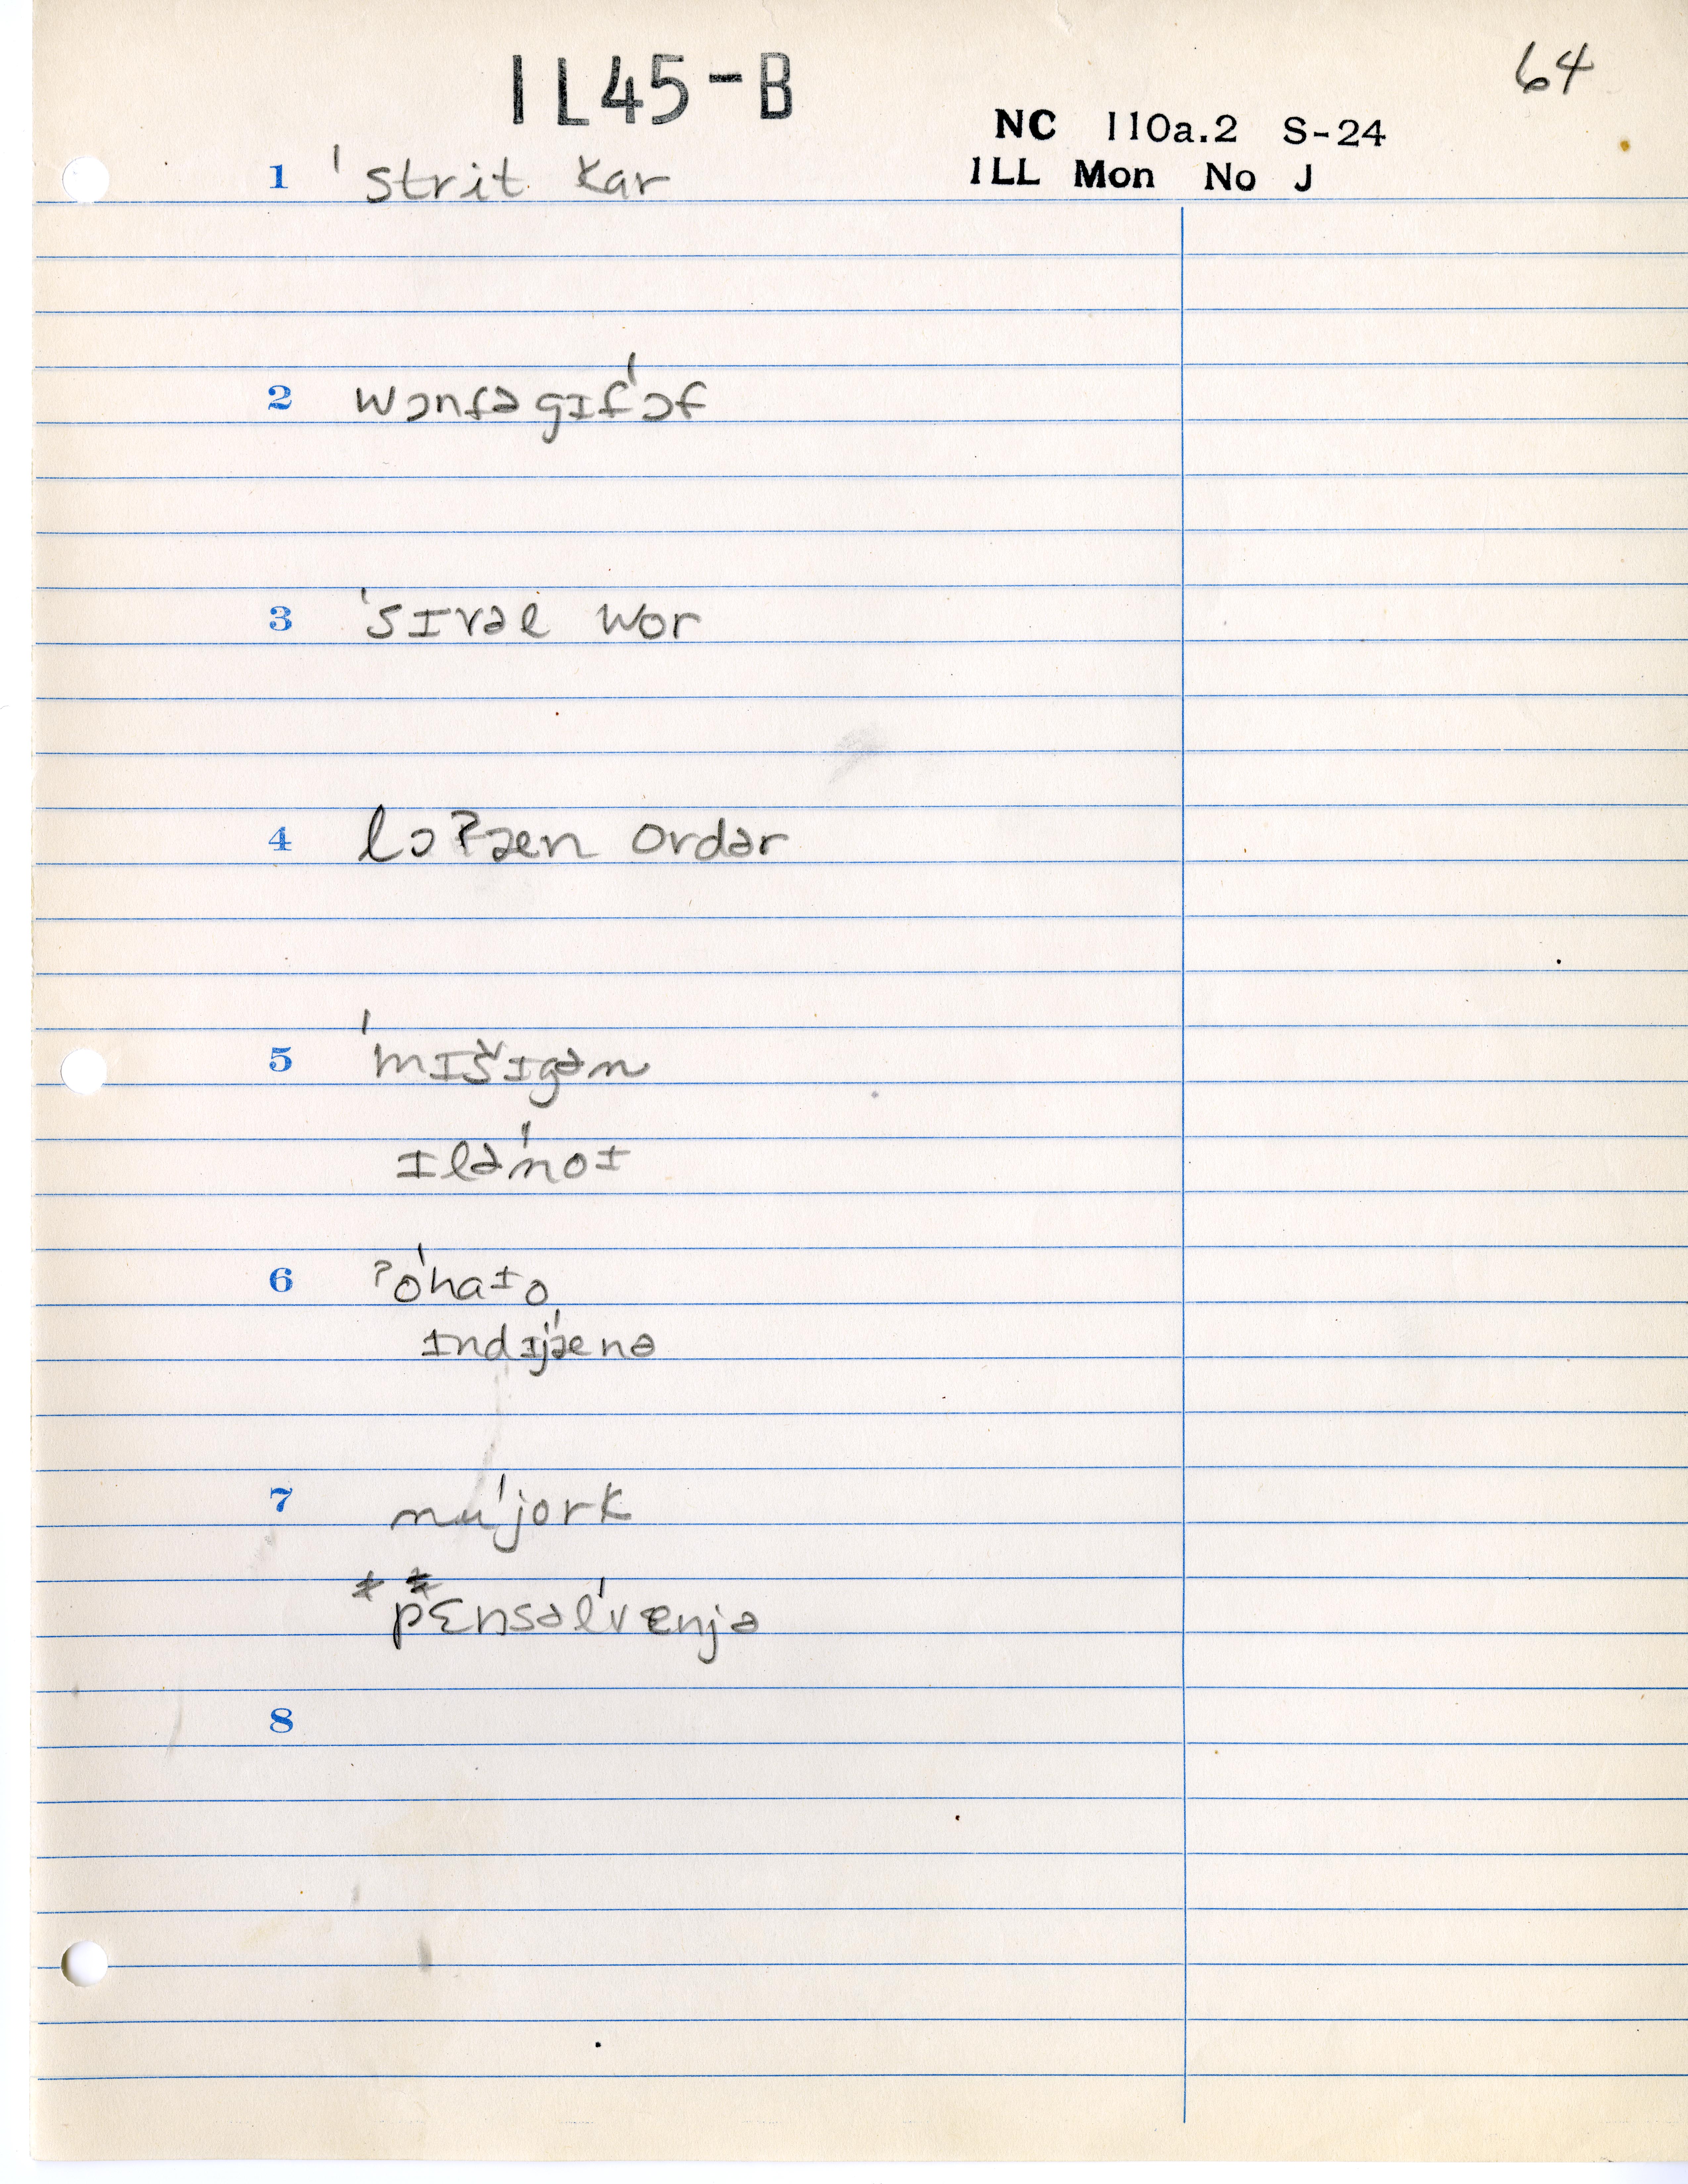 64
IL45-B
NC 110a.2 S-24
ILL Mon No J
1 ˈstrit kar
2 wɔnfə gɪfˈɔf
3 ˈsɪvəl wor
4 lɔʔæn ordər
5 ˈmɪšɪgən
ɪləˈnoɪ
6 ʔoˈhaɪo
ɪndɪˈjænə
7 nuˈjork
* * pɛnsəlˈvænjə
8